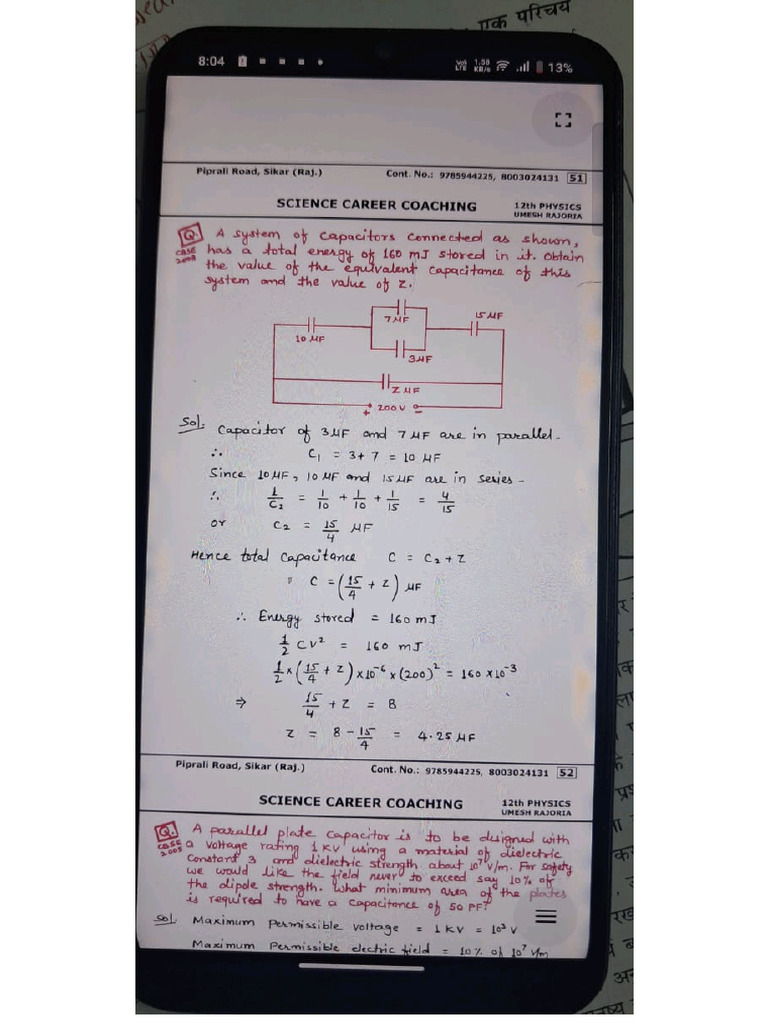 एक परिचय
8:04
Vo) LTE 1.58 KB/s 13%
Piprali Road, Sikar (Raj.) Cont. No.: 9785944225, 8003024131 51
SCIENCE CAREER COACHING 12th PHYSICS
UMESH RAJORIA
Q. A system of capacitors connected as shown,
CBSE 2008 has a total energy of 160 mJ stored in it. Obtain
the value of the equivalent capacitance of this
system and the value of Z.
7 μF
15 μF
10 μF
3 μF
Z μF
+ 200 V -
Sol. Capacitor of 3 μF and 7 μF are in parallel-
∴ C₁ = 3 + 7 = 10 μF
Since 10 μF, 10 μF and 15 μF are in series-
∴ 1/C₂ = 1/10 + 1/10 + 1/15 = 4/15
or C₂ = 15/4 μF
Hence total capacitance C = C₂ + Z
" C = (15/4 + Z) μF
∴ Energy stored = 160 mJ
1/2 CV² = 160 mJ
1/2 × (15/4 + Z) × 10⁻⁶ × (200)² = 160 × 10⁻³
⇒ 15/4 + Z = 8
Z = 8 - 15/4 = 4.25 μF
Piprali Road, Sikar (Raj.) Cont. No.: 9785944225, 8003024131 52
SCIENCE CAREER COACHING 12th PHYSICS
UMESH RAJORIA
Q. A parallel plate capacitor is to be designed with
CBSE 2005 a voltage rating 1 KV using a material of dielectric
Constant 3 and dielectric strength about 10⁷ V/m. For safety
we would like the field never to exceed say 10% of
the dipole strength. What minimum area of the plates
is required to have a capacitance of 50 PF?
Sol. Maximum Permissible voltage = 1 KV = 10³ V
Maximum Permissible electric field = 10% of 10⁷ V/m